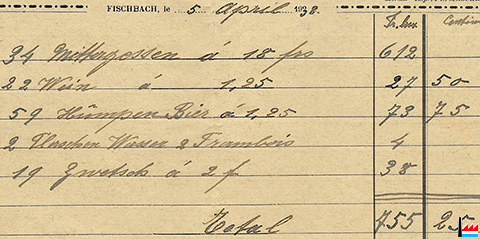 FISCHBACH, le 5 April 1938.
Fr. lux Centim
34 Mittagessen á 18 frs 612
22 Wein á 1,25 27 50
59 Humpen Bier á 1,25 73 75
2 Flaschen Wasser 2 Frambois 4
19 Zwetsch á 2 f 38
Total 755 25